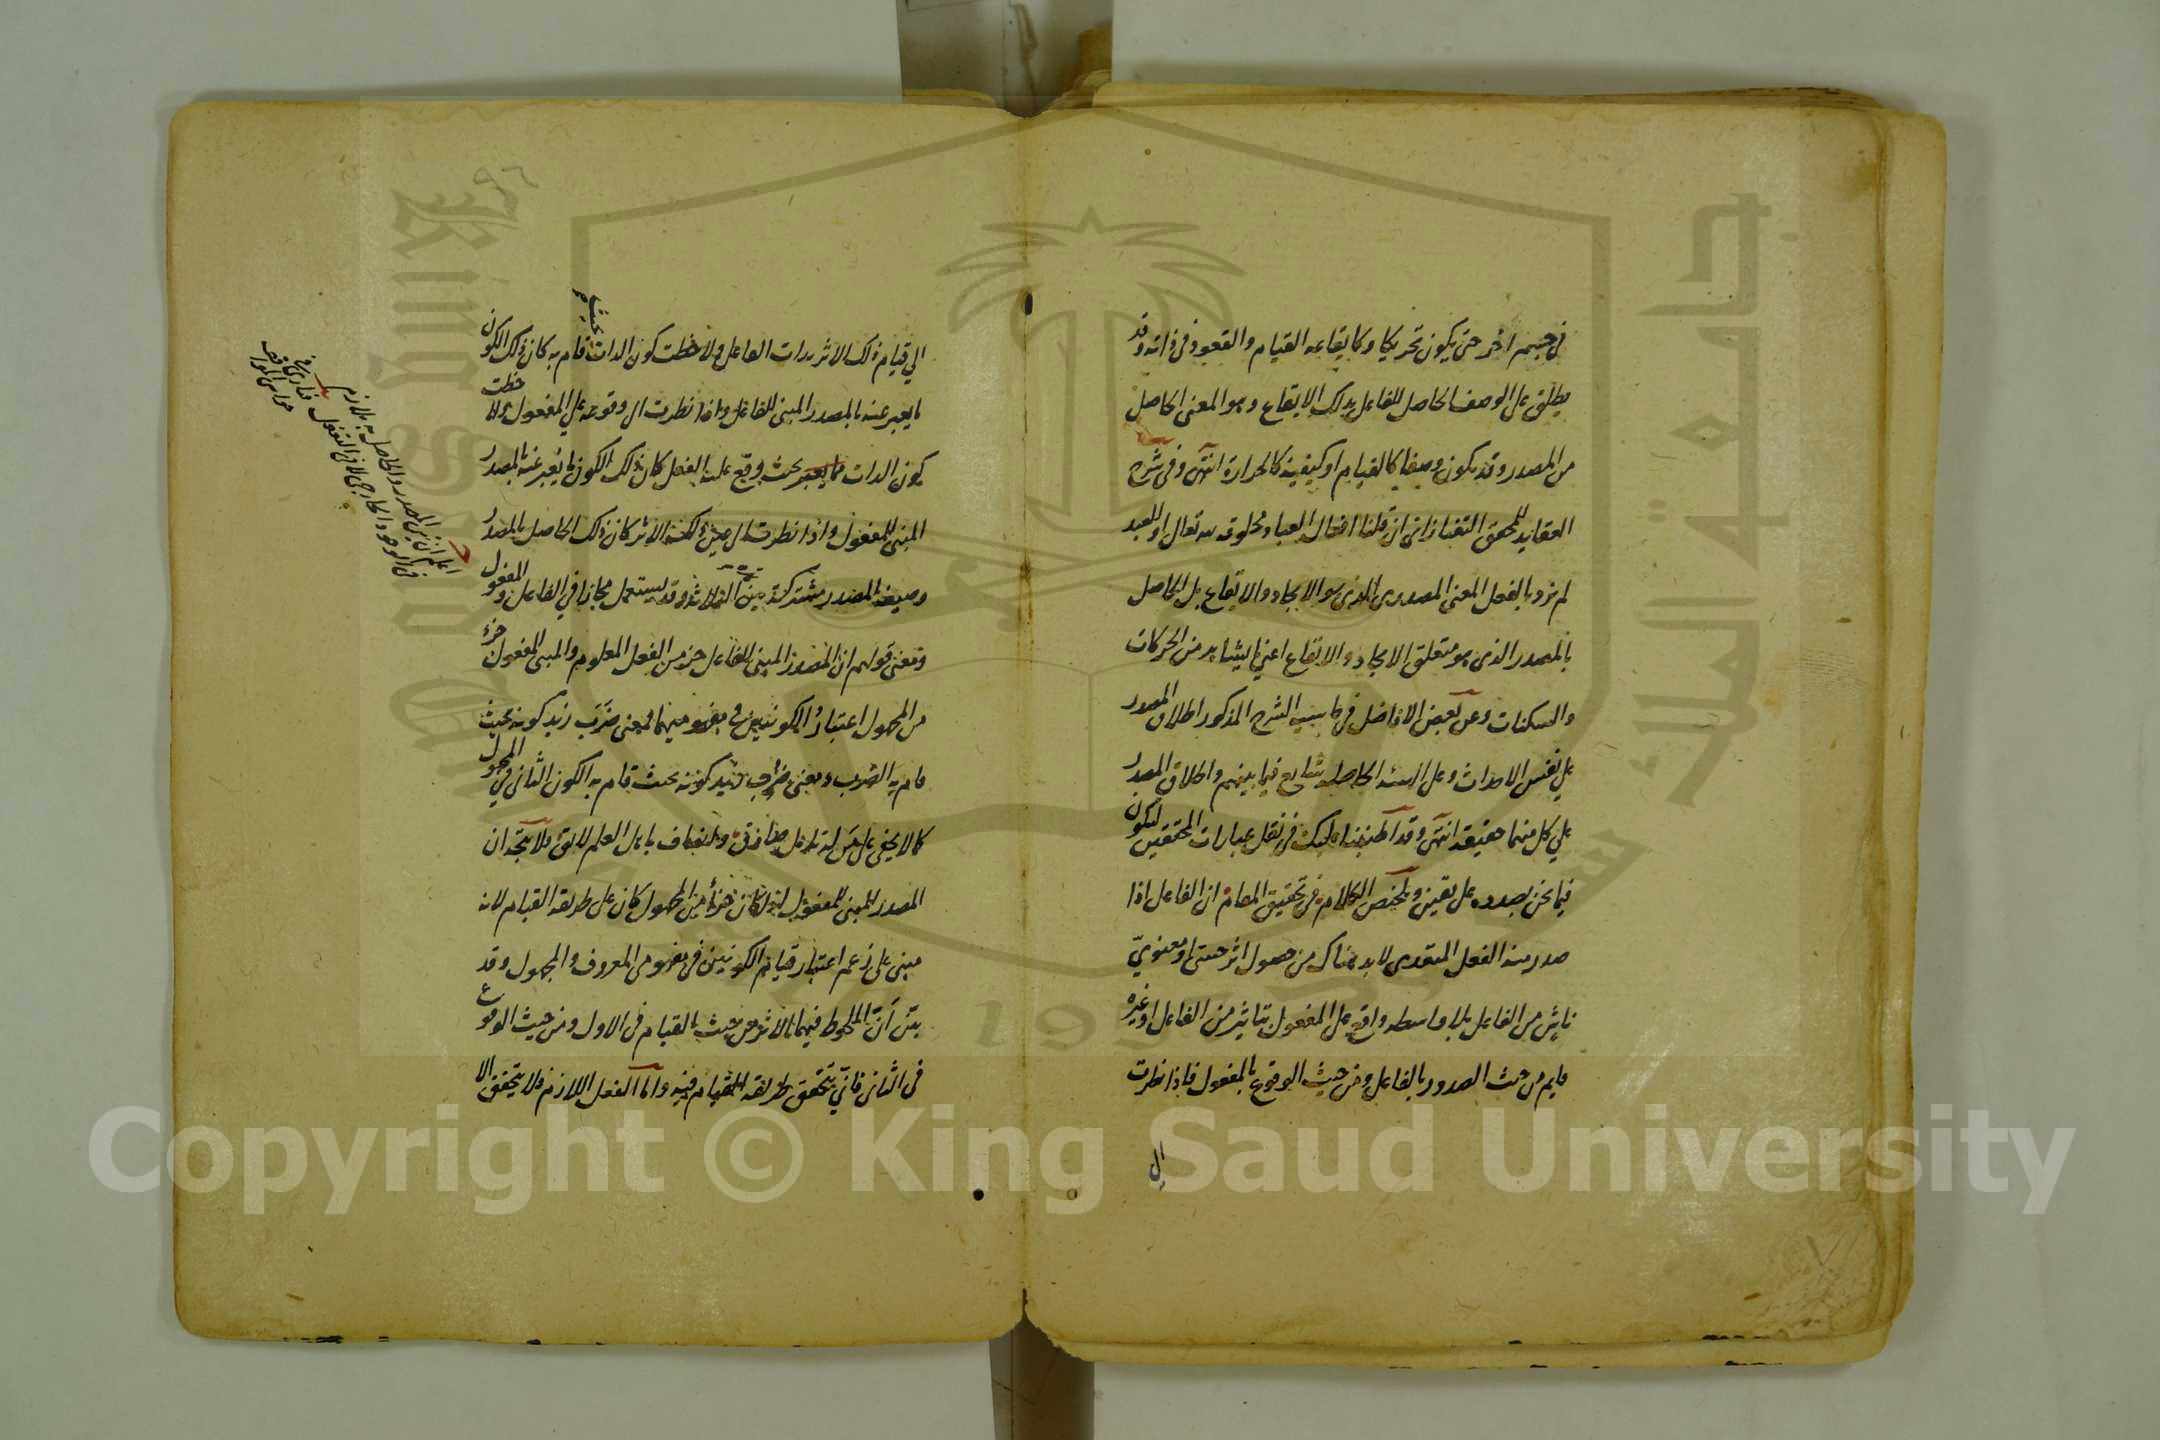 في جسم آخر حتى يكون تحريكا وكايقاعه القيام والقعود في ذاته وقد
يطلق على الوصف الحاصل للفاعل بذلك الايقاع وهو المعنى الحاصل
من المصدر وقد يكون وصفا كالقيام او كيفية كالحرارة انتهى وفي شرح
العقائد للمحقق التفتازاني ان قلنا افعال العباد مخلوقه لله تعالى او للعبد
لم نرد بالفعل المعنى المصدري الذي هو الايجاد والايقاع بل الحاصل
بالمصدر الذي هو متعلق الايجاد والايقاع اعني ما يشاهد من الحركات
والسكنات وعن بعض الافاضل في حاشية الشرح المذكور اطلاق المصدر
على نفس الاحداث وعلى الهيئة الحاصلة شايع فيما بينهم واطلاق المصدر
على كل منهما حقيقة انتهى وقد اطنبنا عليك في نقل عبارات المحققين لتكون
فيما نحن بصدده على يقين وملخص الكلام في تحقيق المقام ان الفاعل اذا
صدر منه الفعل المتعدي لا بد هناك من حصول اثر حسي او معنوي
ناش من الفاعل بلا واسطه واقع على المفعول بتاثير من الفاعل او غيره
قايم من حيث الصدور بالفاعل ومن حيث الوقوع بالمفعول فاذا نظرت
الى
الى قيام ذلك الاثر بذات الفاعل ولاحظت كون الذات بحيث قام به كان ذلك الكون
ما يعبر عنه بالمصدر المبني للفاعل واذا نظرت الى وقوعه على المفعول ولاحظت
كون الذات بحيث وقع عليه الفعل كان ذلك الكون ما يعبر عنه بالمصدر
المبني للمفعول واذا نظرت الى عين ذلك الاثر كان ذلك الحاصل بالمصدر
وصيغة المصدر مشتركة بين الثلاثة وقد يستعمل مجازا في الفاعل والمفعول
ومعنى قولهم ان المصدر المبني للفاعل جزء من الفعل المعلوم والمبني للمفعول جزء
من المجهول اعتبار الكونين في مفهوميهما فمعنى ضَرَبَ زيد كونه بحيث
قام به الضرب ومعنى ضُرب زيد كونه بحيث قام به الكون الثاني في المجهول
كما لا يخفى على من له تامل صادق وانصاف باهل العلم لائق فلا يتجه ان
المصدر المبني للمفعول لو كان جزءا من المجهول كان على طريقة القيام لانه
مبني على زعم اعتبار قيام الكونين في مفهومي المعروف والمجهول وقد
بين انّ الملحوظ فيهما الاثر من حيث القيام في الاول ومن حيث الوقوع
في الثاني فانّي يتحقق طريقة القيام فيه واما الفعل اللازم فلا يتحقق الا
اعلم ان بين المصدر والحاصل به تلازم
في الوجود الخارجي لا في التعقل
King Saud University
1957
Copyright © King Saud University